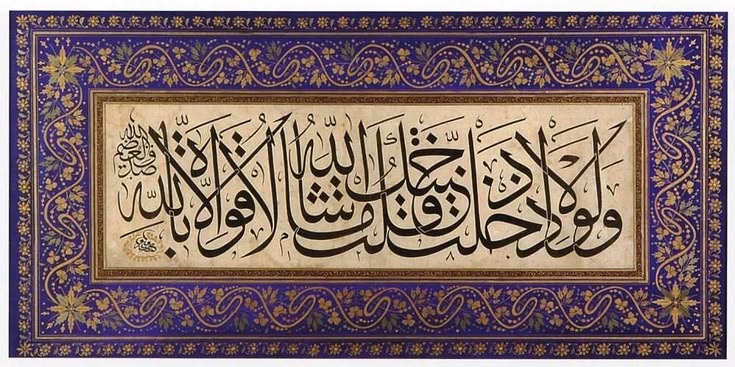 ولولا اذ دخلت جنتك قلت ما شا الله لا قوة الا بالله
صدق الله العظيم